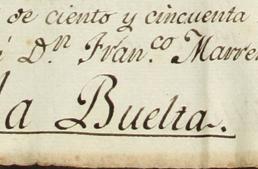 de ciento y cincuenta
Dn. Franco. Marre
la Buelta.